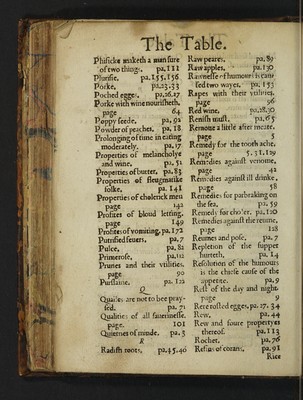 The Table.
Phisicke maketh a mansure
of two things. pa.111
Plurisie. pa.155.156
Porke. pa.23.33
Poched egges. pa.26.27
Porke with wine nourisheth.
page 64
Poppy seede. pa.92
Powder of peaches. pa.18
Prolonging of time in eating
moderately. pa.17
Properties of melancholye
and wine. pa.51
Properties of butter. pa.83
Properties of fleugmatike
folke. pa.141
Properties of cholerick men
page 142
Profites of bloud letting.
page 149
Profites of vomiting. pa.172
Putrified feuers. pa.7
Pulce. pa.81
Primerose. pa.112
Prunes and their vtilities.
page 90
Purslaine. pa.122
Q
Quailes are not to bee praysed.
pa.71
Qualities of all sauerinesse.
page. 101
Quietnes of minde. pa.5
R
Radish roots. pa.45.46
Raw peares. pa.89
Raw apples. pa.130
Rawnesse of humours is caused
two wayes. pa.153
Rapes with their vtilities.
page 96
Red wine. pa.28.30
Renish must. pa.65
Remoue a little after meate.
page
Remedy for the tooth ache.
page 5.31.129
Remedies against venome.
page 42
Remedies against ill drinke.
page 58
Remedies for parbraking on
the sea. pa.59
Remedy for choler. pa.120
Remedies against the reume.
page 123
Reumes and pose. pa.7
Repletion of the supper
hurteth. pa.14
Resolution of the humours
is the chiefe cause of the
appetite. pa.9
Rest of the day and night.
page 9
Rere rosted egges. pa.27.34
Rew. pa.44
Rew and foure propertyes
thereof. pa.113
Rochet. pa.76
Resins of corans. pa.91
Rice